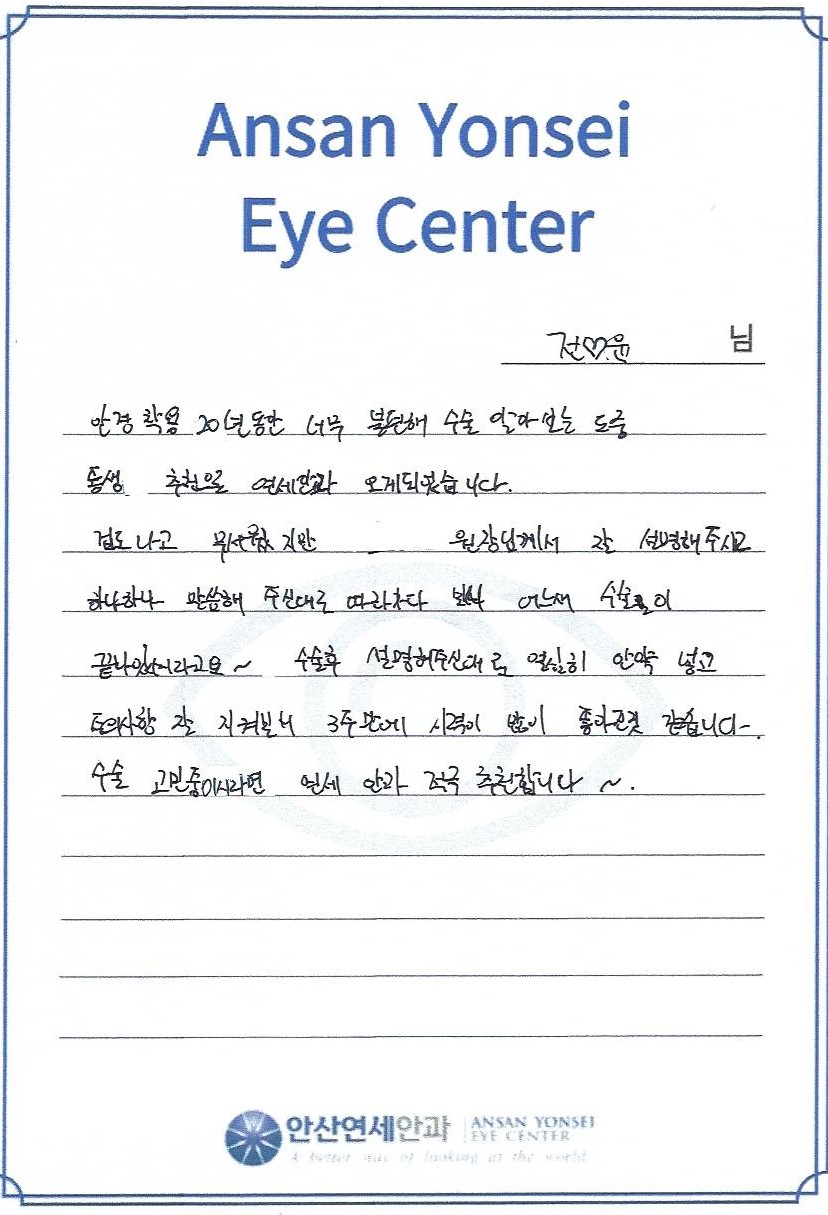 Ansan Yonsei
Eye Center
전♡윤 님
안경 착용 20년동안 너무 불편해 수술 알아보는 도중
동생 추천으로 연세안과 오게되었습니다.
겁도나고 무서웠지만 원장님께서 잘 설명해주시고
하나하나 말씀해 주신대로 따라하다 보니 어느새 수술이
끝나있더라고요~ 수술후 설명해주신대로 열심히 안약 넣고
주의사항 잘 지켜본니 3주만에 시력이 많이 좋아진것 같습니다.
수술 고민중이시라면 연세 안과 적극 추천합니다~.
안산연세안과 ANSAN YONSEI
EYE CENTER
A better way of looking at the world